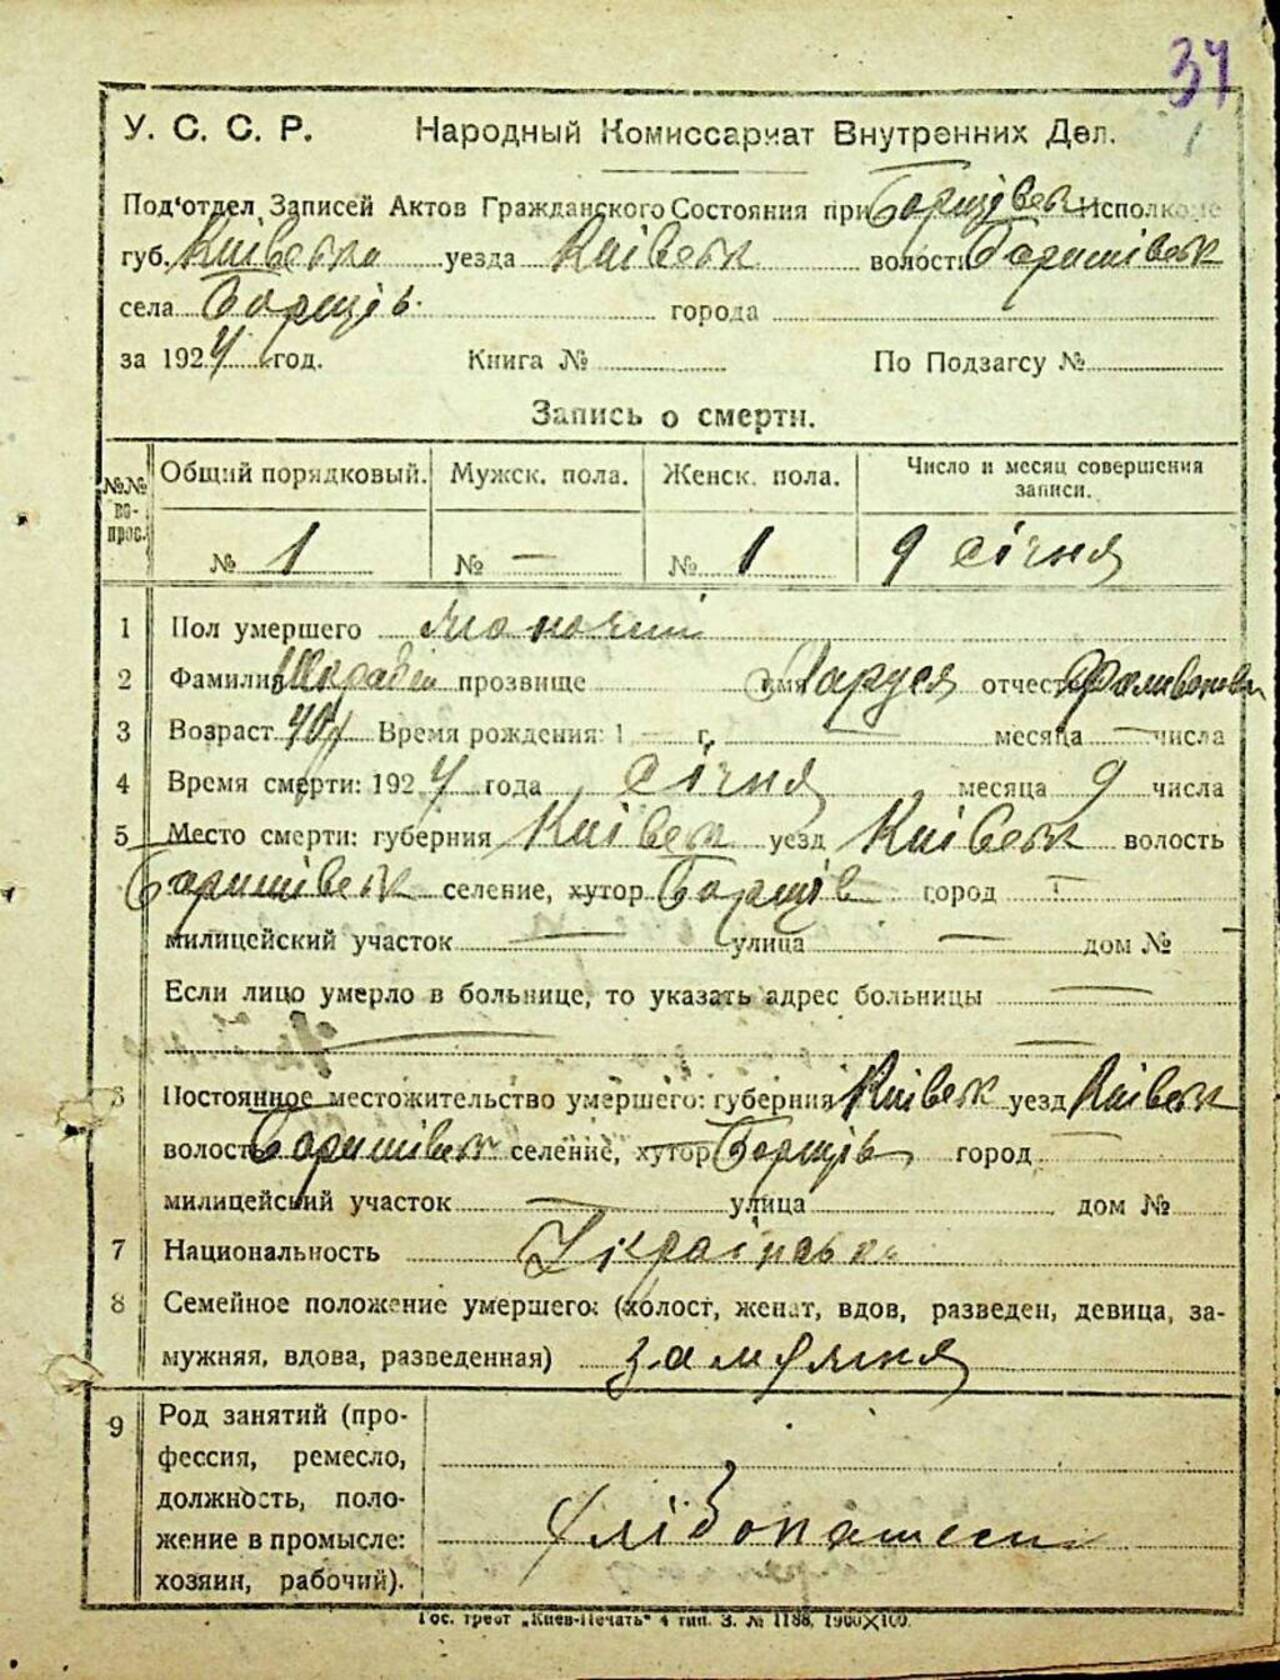 37
У. С. С. Р. Народный Комиссариат Внутренних Дел.
Под'отдел Записей Актов Гражданского Состояния при Борщівск Исполкоме
губ. Київська уезда Київськ волости Баришівськ
села Борщів. города
за 1924 год. Книга № По Подзагсу №
Запись о смерти.
№№ вопрос. Общий порядковый. Мужск. пола. Женск. пола. Число и месяц совершения записи.
№ 1 № — № 1 9 січня
1 Пол умершего жіночий
2 Фамилия прозвище имя Маруся отчест
3 Возраст 40 Время рождения: 1 — г. — месяца — числа
4 Время смерти: 1924 года січня месяца 9 числа
5 Место смерти: губерния Київськ уезд Київськ волость
Баришівськ селение, хутор Борщів город —
милицейский участок — улица — дом № —
Если лицо умерло в больнице, то указать адрес больницы —
— —
6 Постоянное местожительство умершего: губерния Київськ уезд Київськ
волость Баришівськ селение, хутор Борщів город —
милицейский участок — улица дом №
7 Национальность Українська
8 Семейное положение умершего: (холост, женат, вдов, разведен, девица, за-
мужняя, вдова, разведенная) замужня
9 Род занятий (про-
фессия, ремесло,
должность, поло-
жение в промысле:
хозяин, рабочий).
Хлібопашест
Гос. трест „Киев-Печать“ 4 тип. З. № 1188, 1900X100.